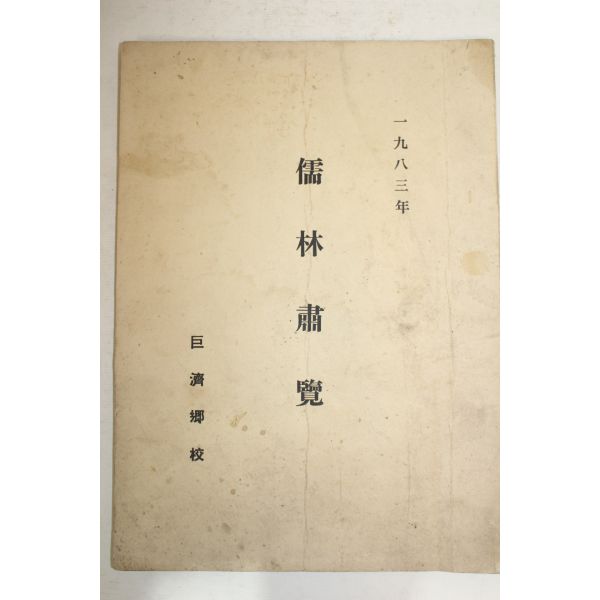 一九八三年
儒林肅覽
巨濟鄕校